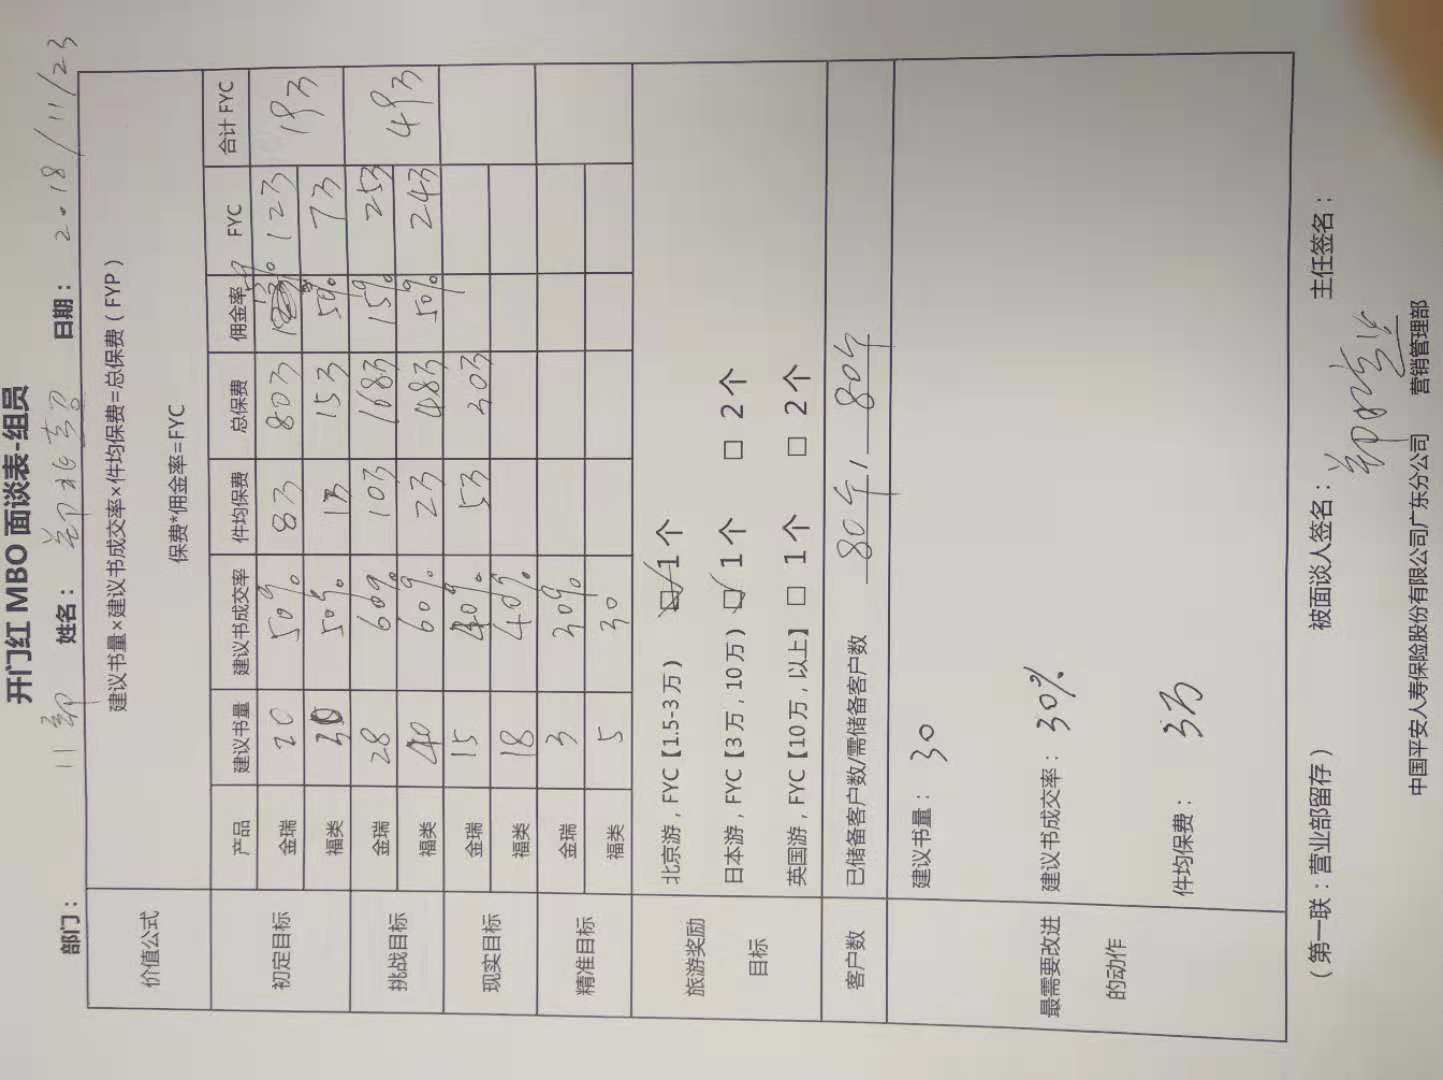 开门红 MBO 面谈表-组员
部门： 姓名： 郑 日期： 2018/11/23
价值公式 建议书量×建议书成交率×件均保费=总保费（FYP）
保费*佣金率=FYC
产品 建议书量 建议书成交率 件均保费 总保费 佣金率 FYC 合计 FYC
初定目标 金瑞 20 50% 8万 80万 15% 12万 19万
福类 30 50% 1万 15万 50% 7万
挑战目标 金瑞 28 60% 10万 168万 15% 25万 49万
福类 40 60% 2万 48万 50% 24万
现实目标 金瑞 15 40% 5万 30万
福类 18 40%
精准目标 金瑞 3 30%
福类 5 30
旅游奖励
目标
北京游，FYC【1.5-3 万） ☑ 1 个
日本游，FYC【3 万，10 万） ☑ 1 个 □ 2 个
英国游，FYC【10 万，以上】 □ 1 个 □ 2 个
客户数 已储备客户数/需储备客户数 80个/80个
最需要改进
的动作
建议书量： 30
建议书成交率： 30%
件均保费： 3万
（第一联：营业部留存） 被面谈人签名： 郑 主任签名：
中国平安人寿保险股份有限公司广东分公司 营销管理部